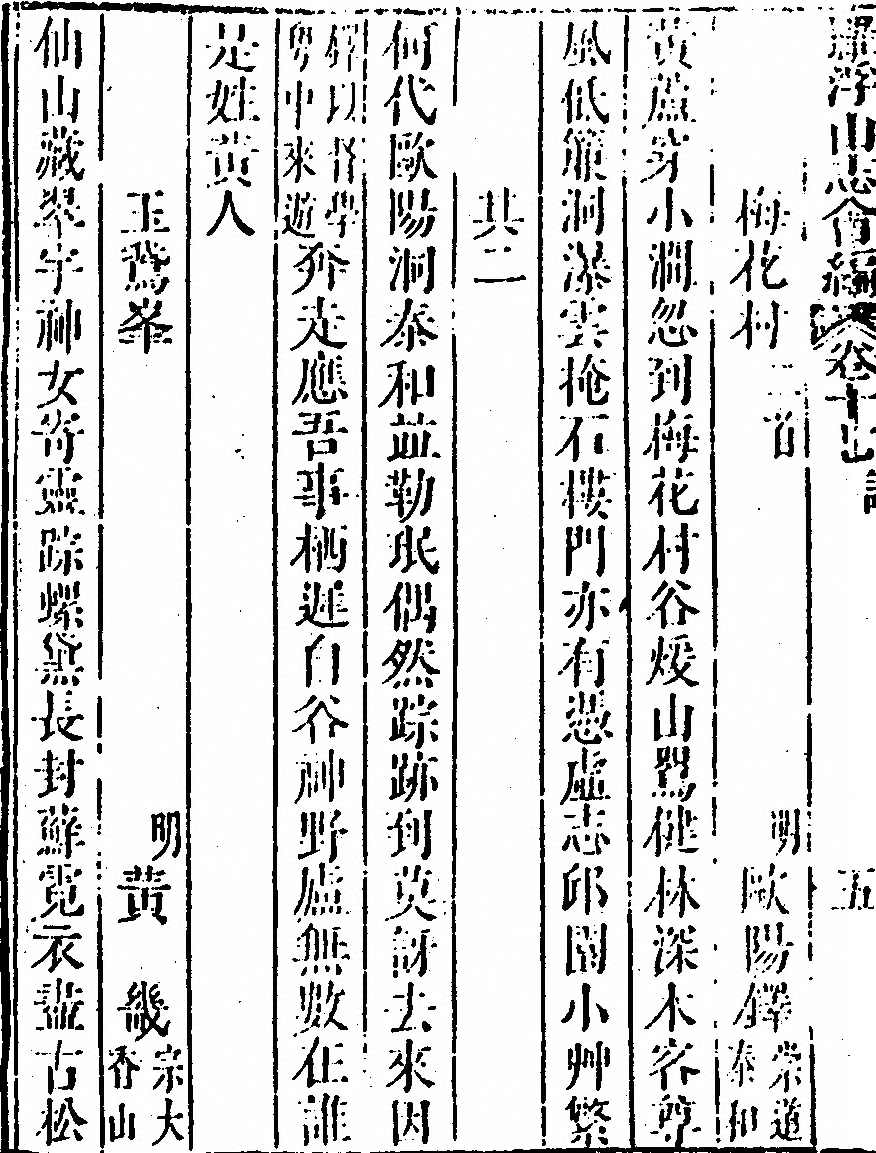 羅浮山志會編 卷十七 五
梅花村 二首 明 歐陽鐸 崇道 泰和
黃蘆穿小澗忽到梅花村谷煖山駡健林深木客尊
風低簾洞瀑雲掩石樓門亦有憑虛志邱園小艸繁
其二
何代歐陽洞泰和並勒珉偶然踪跡到莫訝去來因
鐸以督學粵中來遊 奔走應吾事栖遲自谷神野廬無數在誰
是姓黃人
玉鵞峯 明 黃 畿 宗大 香山
仙山藏翠宇神女寄靈踪螺黛長封蘚霓衣盡古松